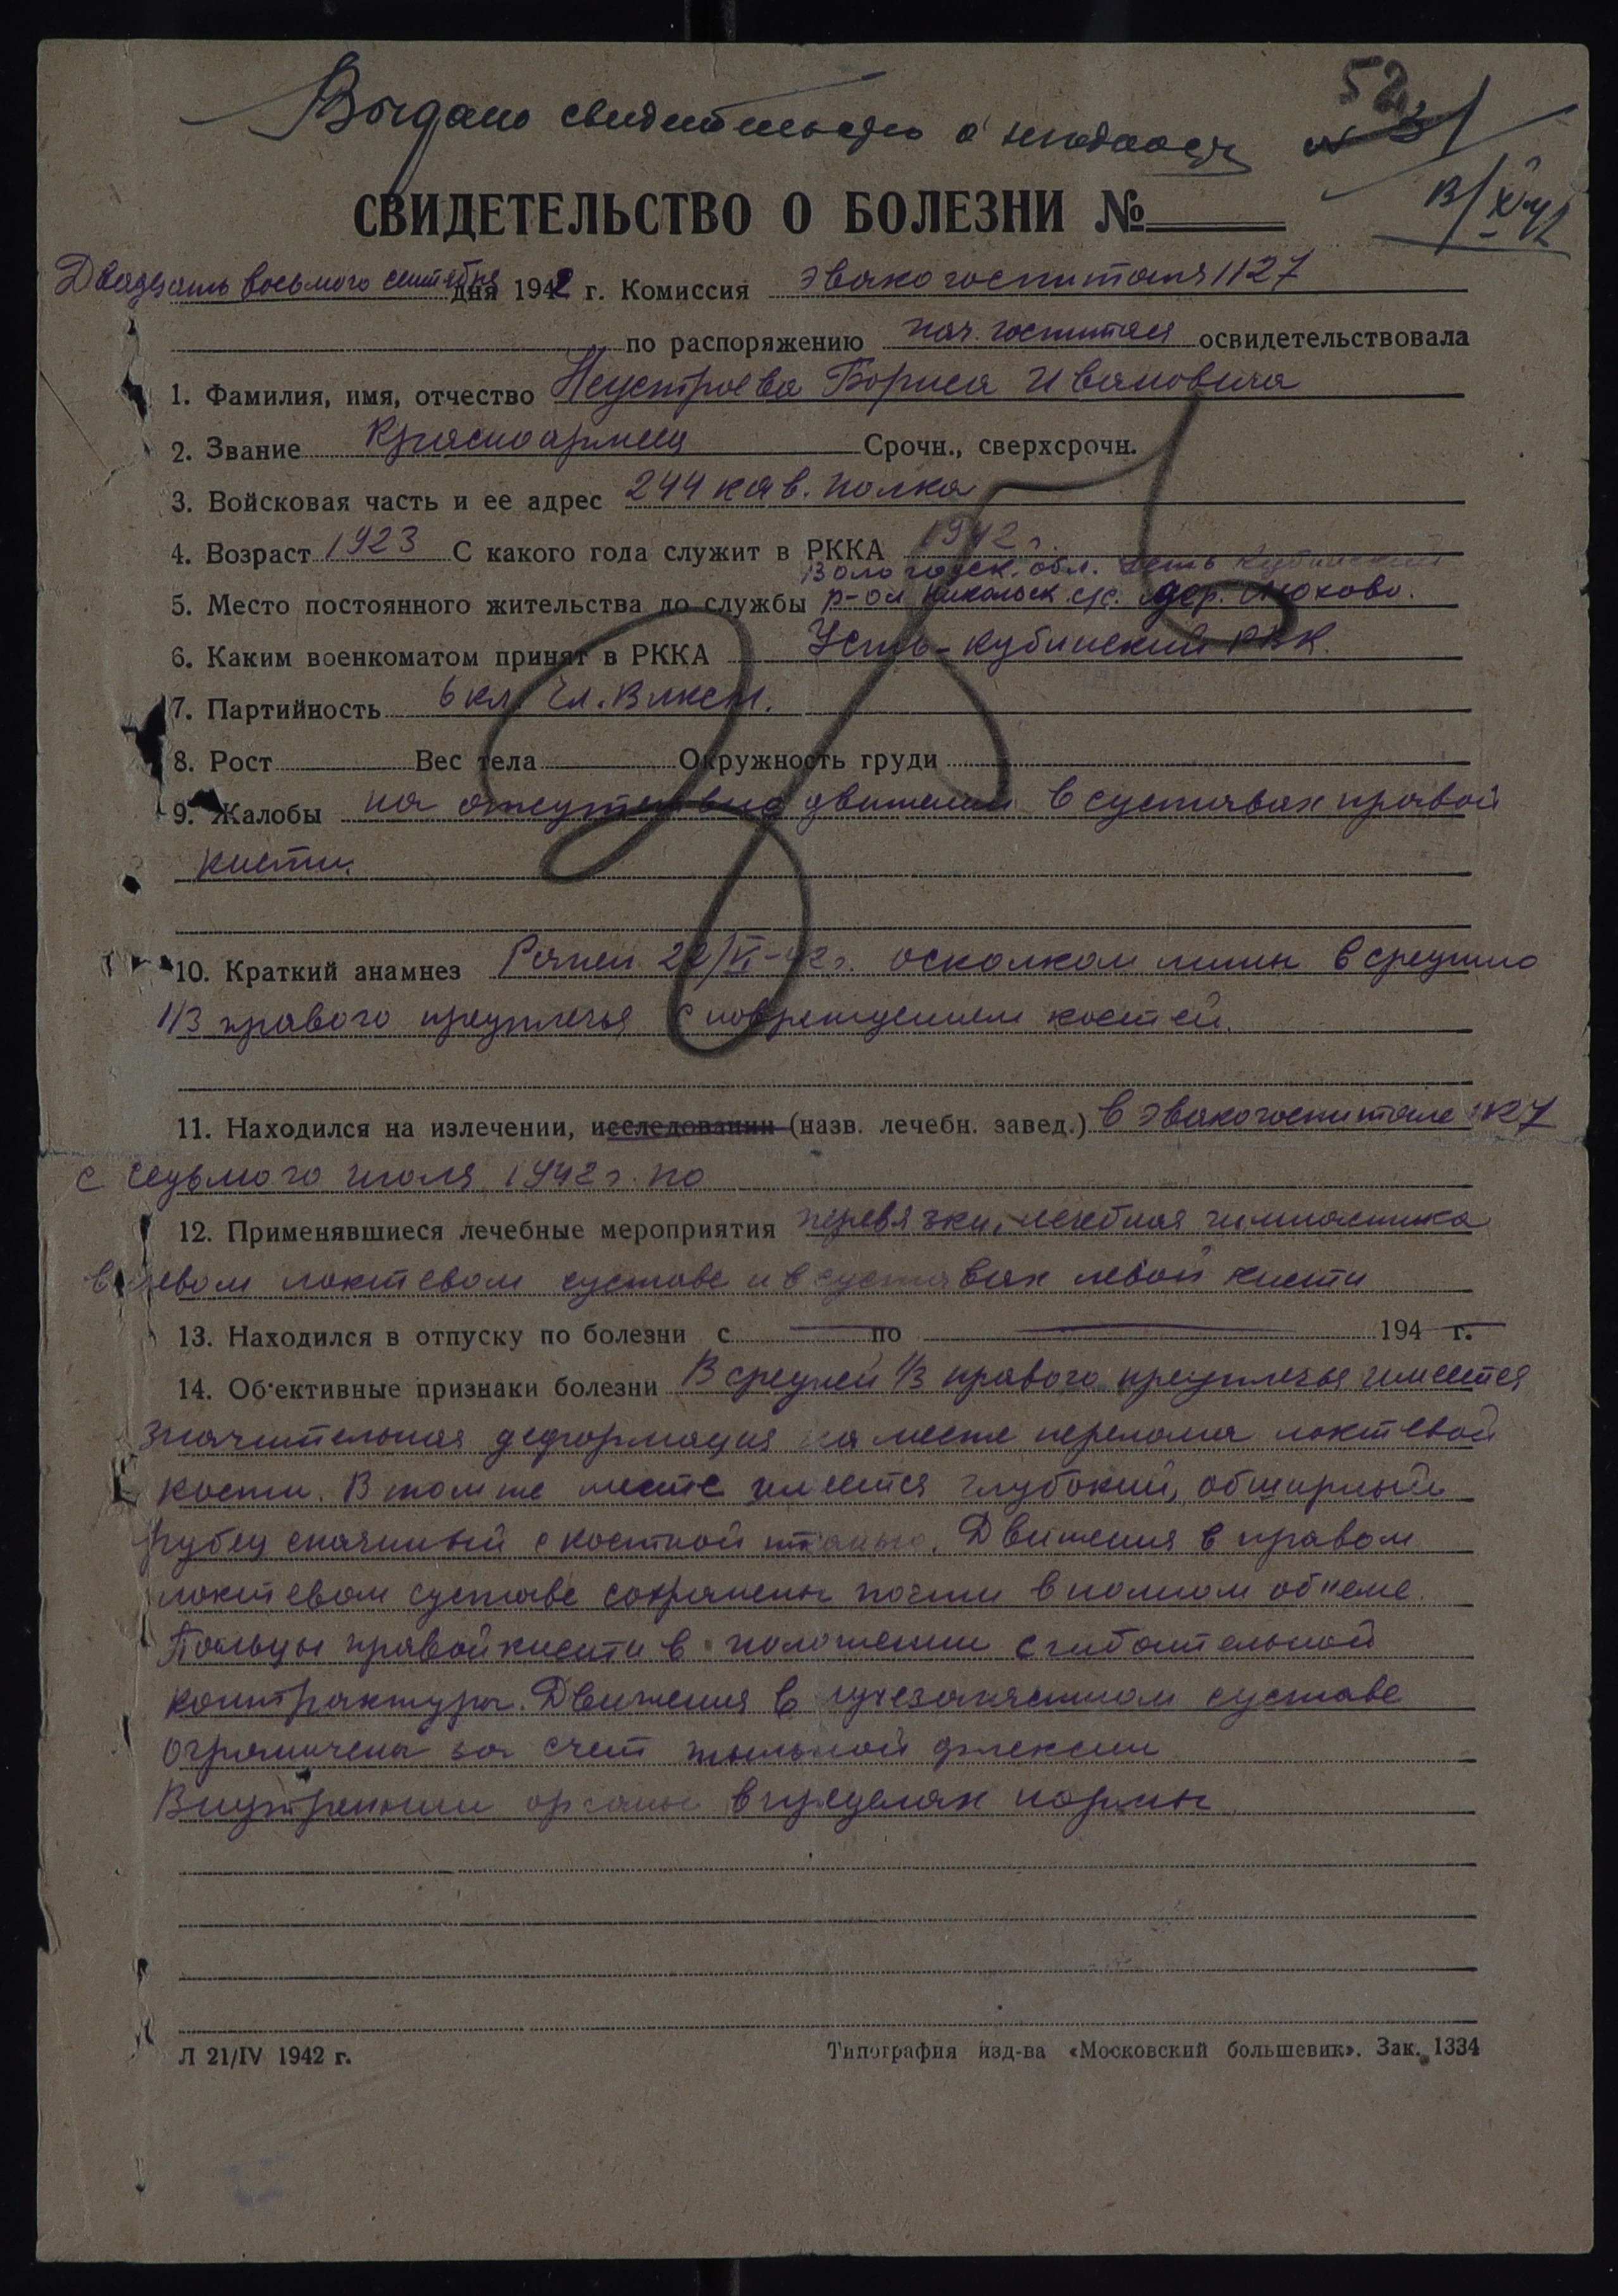 52
Выдано свидетельство о
СВИДЕТЕЛЬСТВО О БОЛЕЗНИ №
Двадцать восьмого сентября дня 1942 г. Комиссия эвакогоспиталя 1127
по распоряжению нач. госпиталя освидетельствовала
1. Фамилия, имя, отчество Неустроева Бориса Ивановича
2. Звание Красноармеец Срочн., сверхсрочн.
3. Войсковая часть и ее адрес 244 кав. полка
4. Возраст 1923 С какого года служит в РККА 1942 г.
Вологодск. обл. Усть Кубинский
5. Место постоянного жительства до службы р-он Никольск с/с. дер.
6. Каким военкоматом принят в РККА Усть-Кубинский РВК.
7. Партийность 6 кл. Чл. Влксм.
8. Рост Вес тела Окружность груди
9. Жалобы на отсутствие движений в суставах правой
кисти.
10. Краткий анамнез Ранен 22/VI-42 г. осколком мины в среднюю
1/3 правого предплечья с повреждением костей.
11. Находился на излечении, исследовании (назв. лечебн. завед.) в эвакогоспитале 1127
с седьмого июля 1942 г. по
12. Применявшиеся лечебные мероприятия перевязки, лечебная гимнастика
в левом локтевом суставе и в суставах левой кисти
13. Находился в отпуску по болезни с — по — 194 г.
14. Об'ективные признаки болезни В средней 1/3 правого предплечья имеется
значительная деформация на месте перелома локтевой
кости. В том же месте имеется глубокий, обширный
рубец спаянный с костной тканью. Движения в правом
локтевом суставе сохранены почти в полном об'еме.
Пальцы правой кисти в положении сгибательной
контрактуры. Движения в лучезапястном суставе
ограничены за счет тыльной флексии
Внутренние органы в пределах нормы
Л 21/IV 1942 г. Типография изд-ва «Московский большевик». Зак. 1334